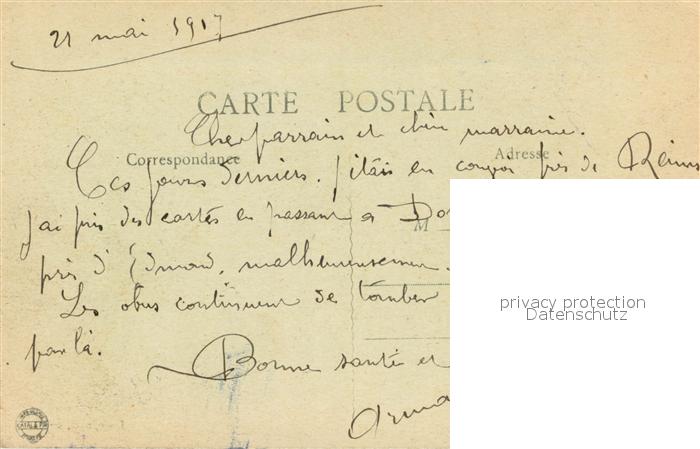 21 mai 1917
CARTE POSTALE
Cher parrain et chère marraine.
Correspondance
Adresse
Ces jours derniers. j'étais en congé près de Reims
J'ai pris des cartes en passant a
M
près d'Edmond, malheureusement.
Les obus continuent de tomber
par là.
privacy protection
Datenschutz
Bonne santé et